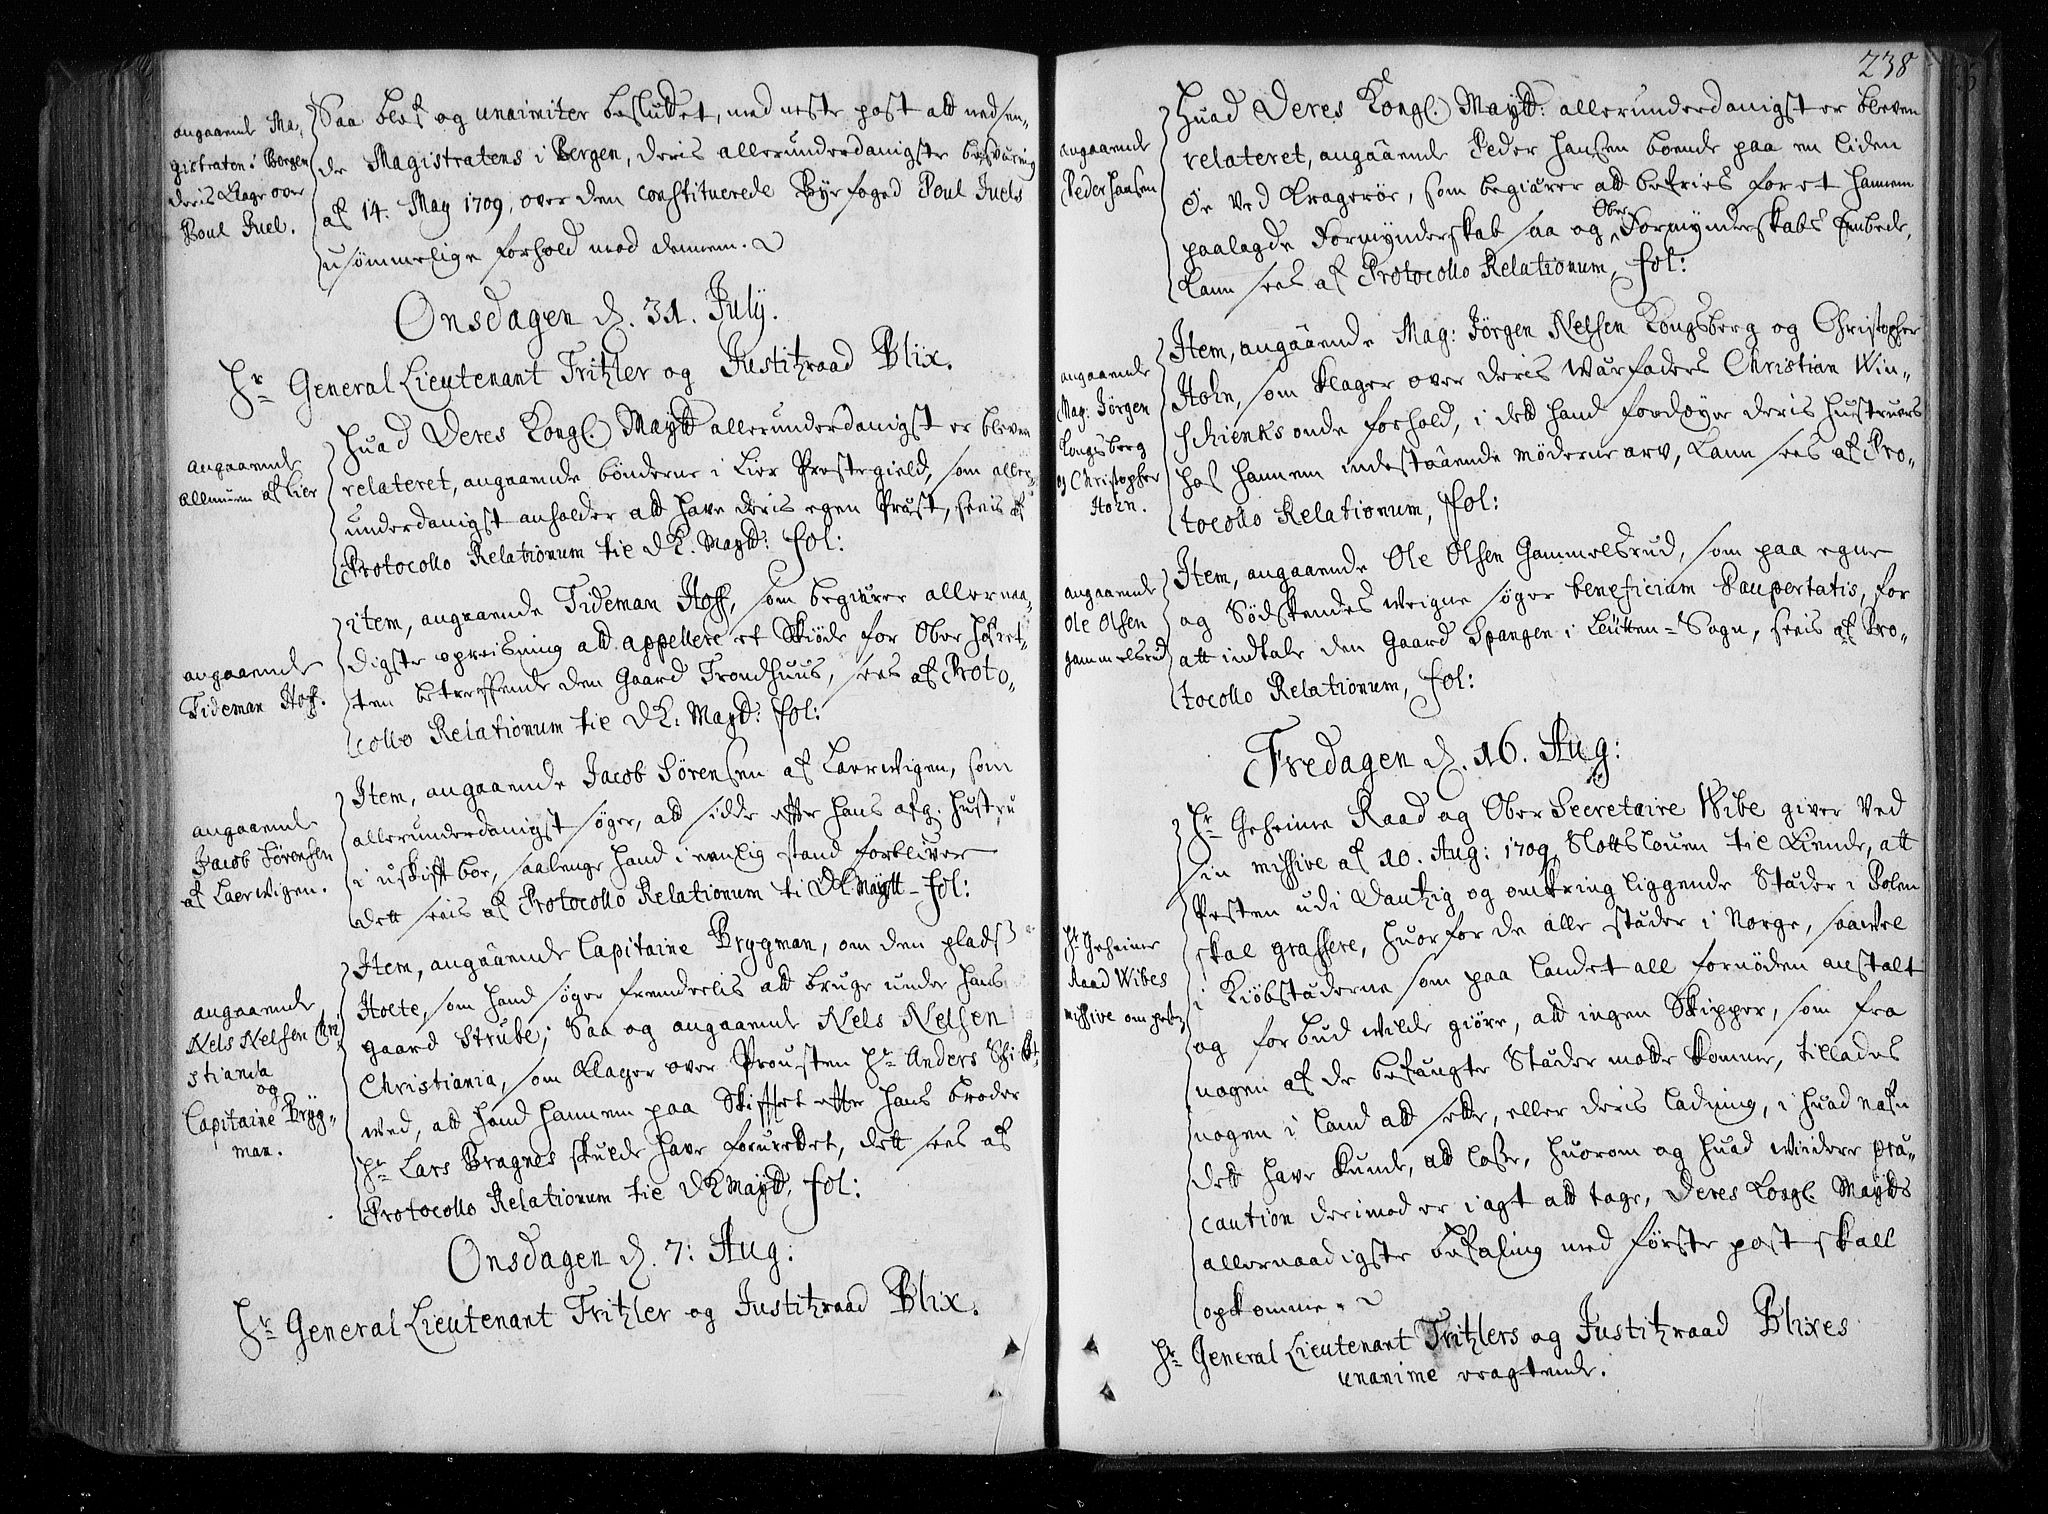 angaaende Ma-
gistraten i Bergen
deris Klage over
Poul Juel.
Saa blef og unaimiter besluttet, med neste post att nedsen-
de Magistratens i Bergen, deris allerunderdanigste besværing
af 14. May 1709, over den constituerede Byefoged Poul Juels
usømmelige forhold mod dennem.
Onsdagen d. 31. July.
Hr General Lieutenant Tritzler og Justitzraad Blix.
angaaende
allmuen af Lier
Huad Deres Kongl. Maytt allerunderdanigst er bleven
relateret, angaaende bønderne i Lier Prestegield, som aller-
underdanigst anholder att have deris egen Præst, sees af
Protocollo Relationum til D K. Maytt: fol:
angaaende
Tideman Hoff.
item, angaaende Tideman Hoff, som begiærer allernaa-
digste opreisning att appellere et Skiøde for Ober Hofret-
ten betreffende den Gaard Trondhuus, sees af Proto-
collo Relationum til D K: Maytt: fol:
angaaende
Jacob Sørensen
af Laerwigen.
Item, angaaende Jacob Sørensen af Laerwigen, som
allerunderdanigst søger, att sidde effter hans afg. Hustru
i uskifft boe, saalenge hand i enlig stand forbliver
dett sees af Protocollo Relationum til D K Maytt fol:
angaaende
Nels Nelsen Chri
stiania
og
Capitaine Bryg-
man.
Item, angaaende Capitaine Brygman, om den plads
Holte, som hand søger fremdeelis att bruge under hans
gaard Strube; Saa og angaaende Nels Nelsen
Christiania, som Klager over Prousten Hr Anders Schibt-
wed, att hand hannem paa Skifftet effter hans broder
Hr Lars Bragnes skulde have forurettet, dett sees af
Protocollo Relationum til D K Maytt, fol:
Onsdagen d. 7: Aug:
Hr General Lieutenant Tritzler og Justitzraad Blix.
238
angaaende
Peder Hansen
Huad Deres Kongl. Maytt: allerunderdanigst er bleven
relateret, angaaende Peder Hansen boende paa en liden
Øe ved Kragerøe, som begiærer att befries for et hannem
paalagde Formynderskab saa og Ober Formynderskabs Embede,
kann sees af Protocollo Relationum, fol:
angaaende
Mag: Jørgen
Kongsberg
og Christopher
Hohn.
Item, angaaende Mag: Jørgen Nelsen Kongsberg og Christopher
Hohn, som klager over deris Wærfaders Christian Win-
schienks onde forhold, i dett hand fordøyer deris Hustruers
hos hannem indestaaende møderne arv, kann sees af Pro-
tocollo Relationum, fol:
angaaende
Ole Olsen
Gammelsrud
Item, angaaende Ole Olsen Gammelsrud, som paa egne
og Sødskendes weigne søger beneficium Paupertatis, for
att indtale den Gaard Spangen i Leutten-Sogn, sees af Pro-
tocollo Relationum, fol:
Fredagen d. 16. Aug:
Hr Geheime
Raad Wibes
missive om pesten
Hr Geheime Raad og Ober Secretaire Wibe giver ved
sin missive af 10. Aug: 1709, Slottslouen til Kiende, att
Pesten udi Dantzig og omkring liggende Stæder i Polen
skal grassere, huorfor de alle stæder i Norge, saawel
i Kiøbstæderne som paa landet all fornøden anstalt
og forbud wilde giøre, att ingen Skipper, som fra
nogen af de befængte Stæder motte komme, tillades
nogen i land att sette, eller deris ladning, i huad nafn
dett have kunde, att losse, huorom og huad widere præ-
caution derimod er i agt att tage, Deres Kongl. Maytts
allernaadigste befaling med første post skall
opkomme.
Hr General Lieutenant Tritzlers og Justitzraad Blixes
unanime eragtende.